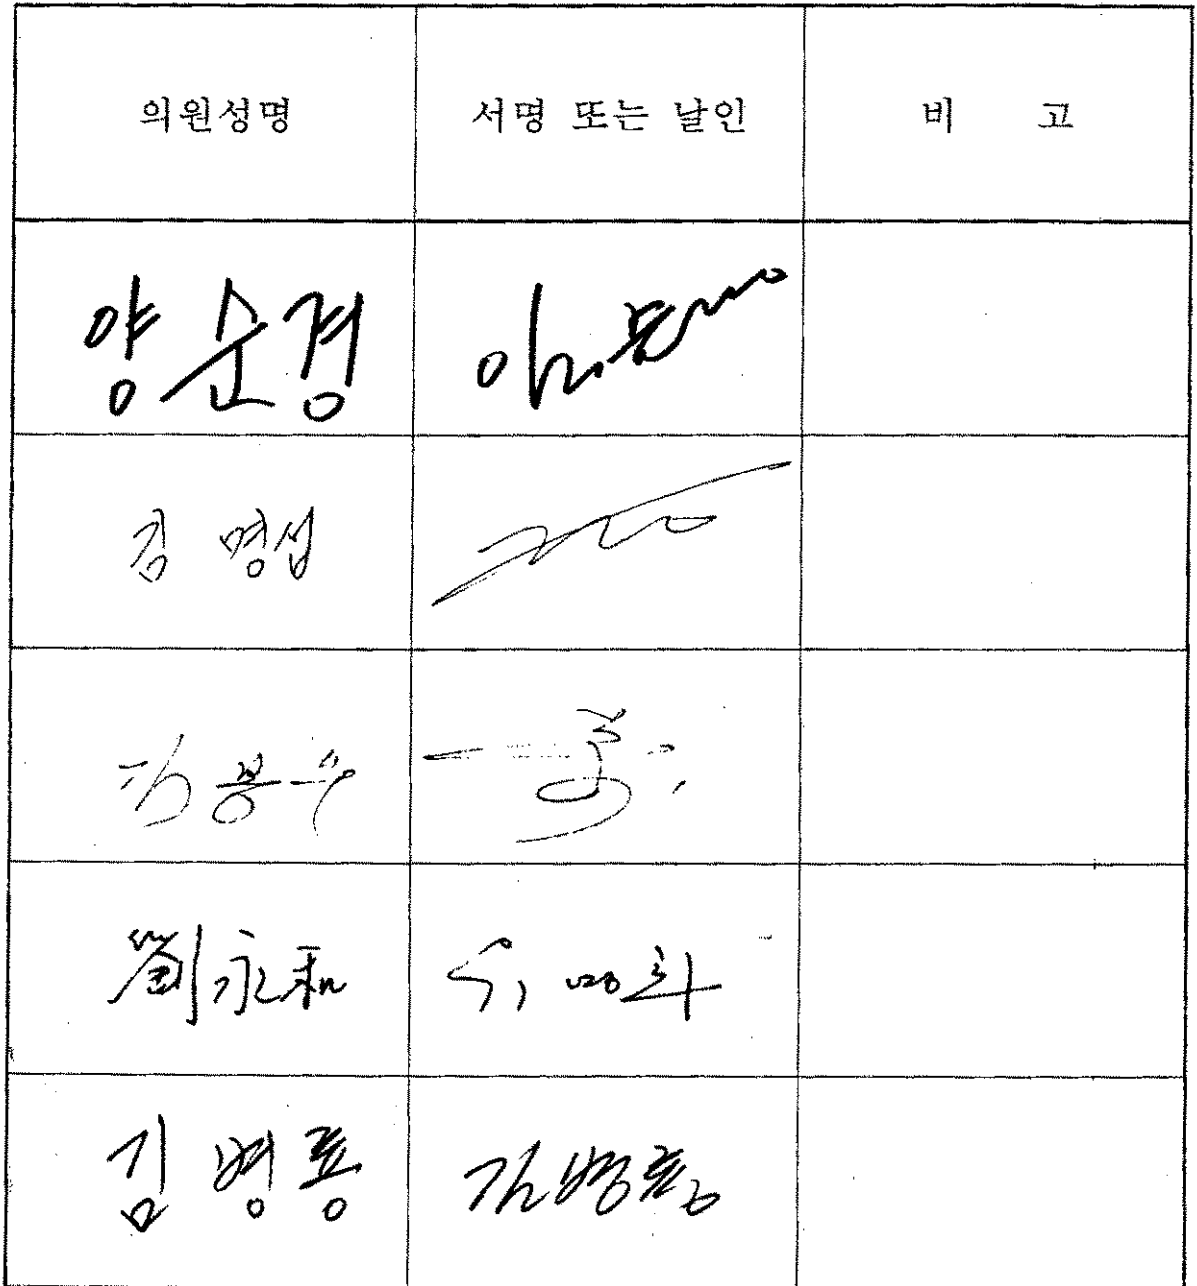 의원성명 서명 또는 날인 비 고
양순경
김 명섭
劉永和 유영화
김병룡 김병룡